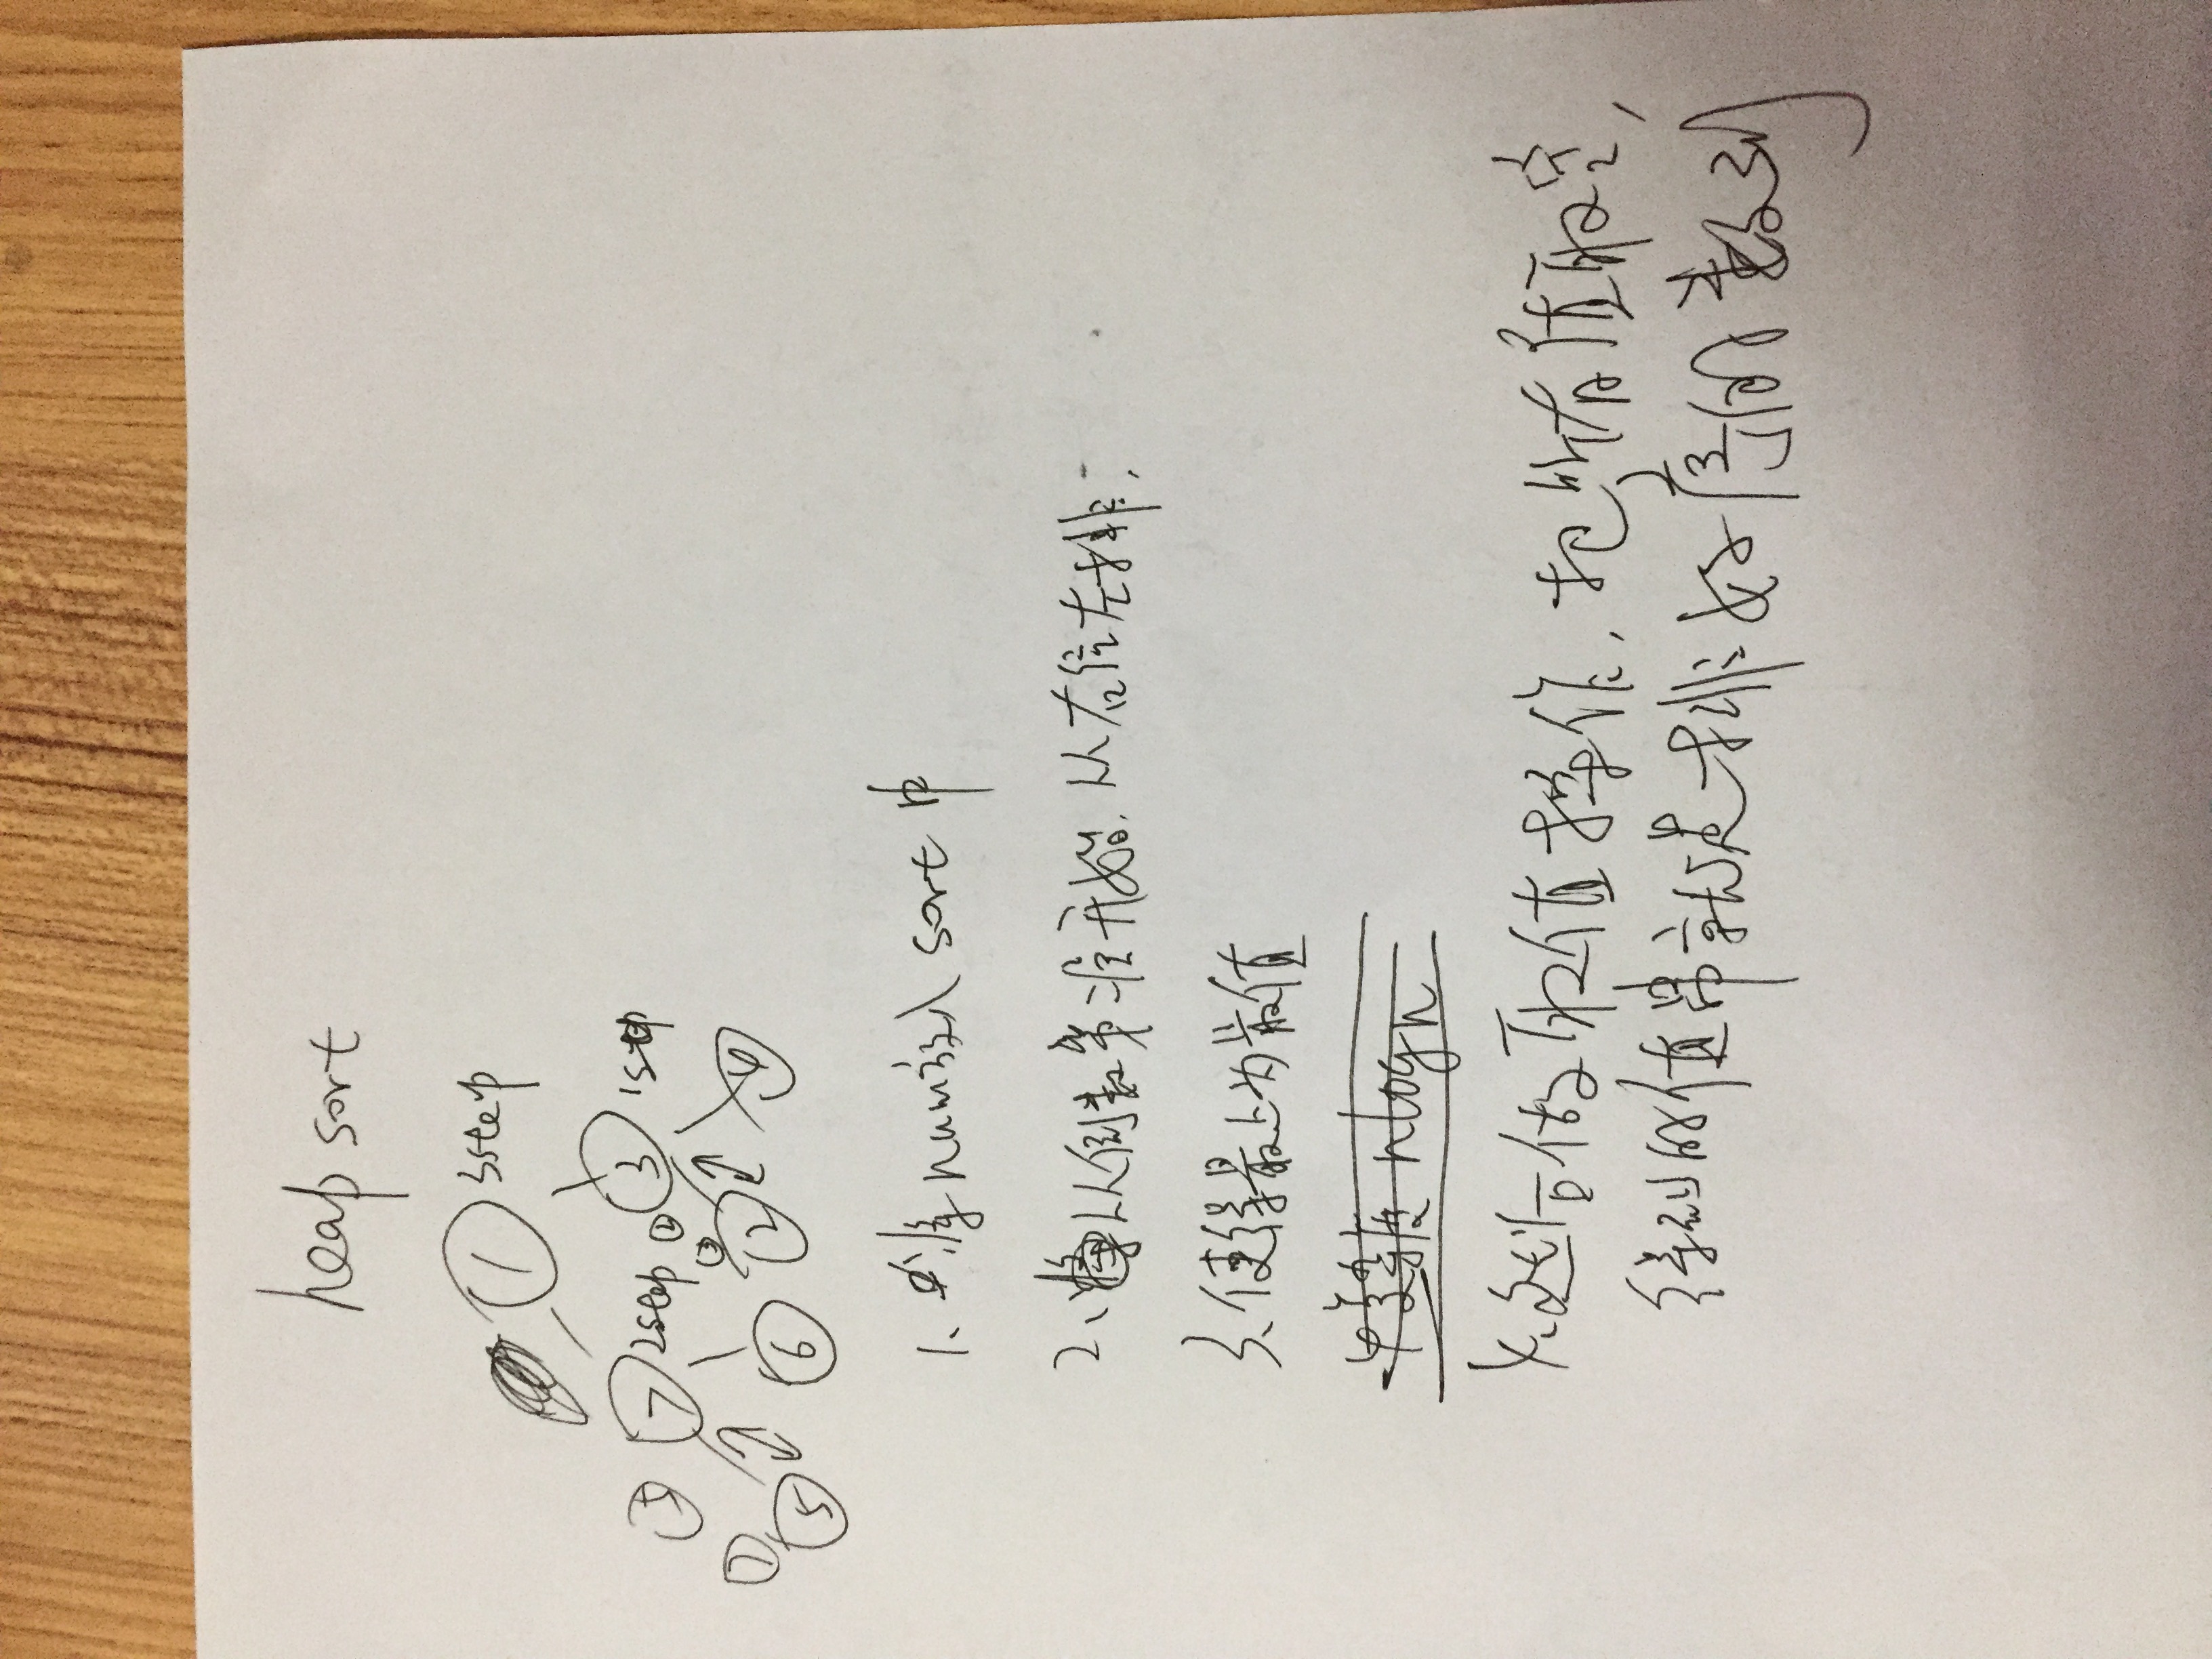 heap sort
1 3step
3 7 2step 2 3 1step
7 5 6 3 2 4
1、将num放入 sort 中
2、从倒数第二层开始,从右往左排;
3、使得最上为最值
4 复杂度 nlogn
4、适合做取值操作,把所有值取空,
得到的值串就是排好序的数列